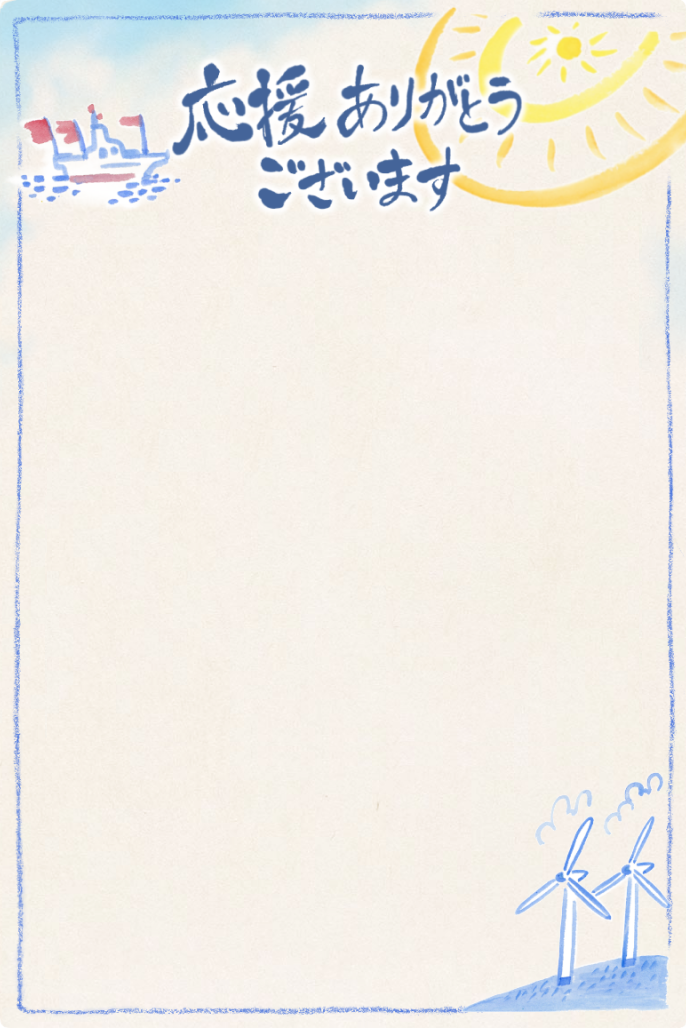 応援ありがとう
ございます